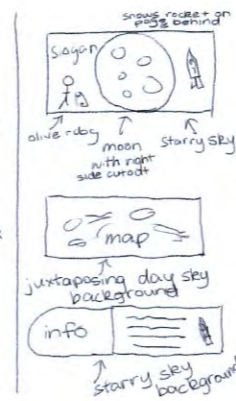 shows rocket on
page behind
slogan
olive + dog
moon
with right
side cutout
starry sky
map
juxtaposing day sky
background
info
starry sky
background